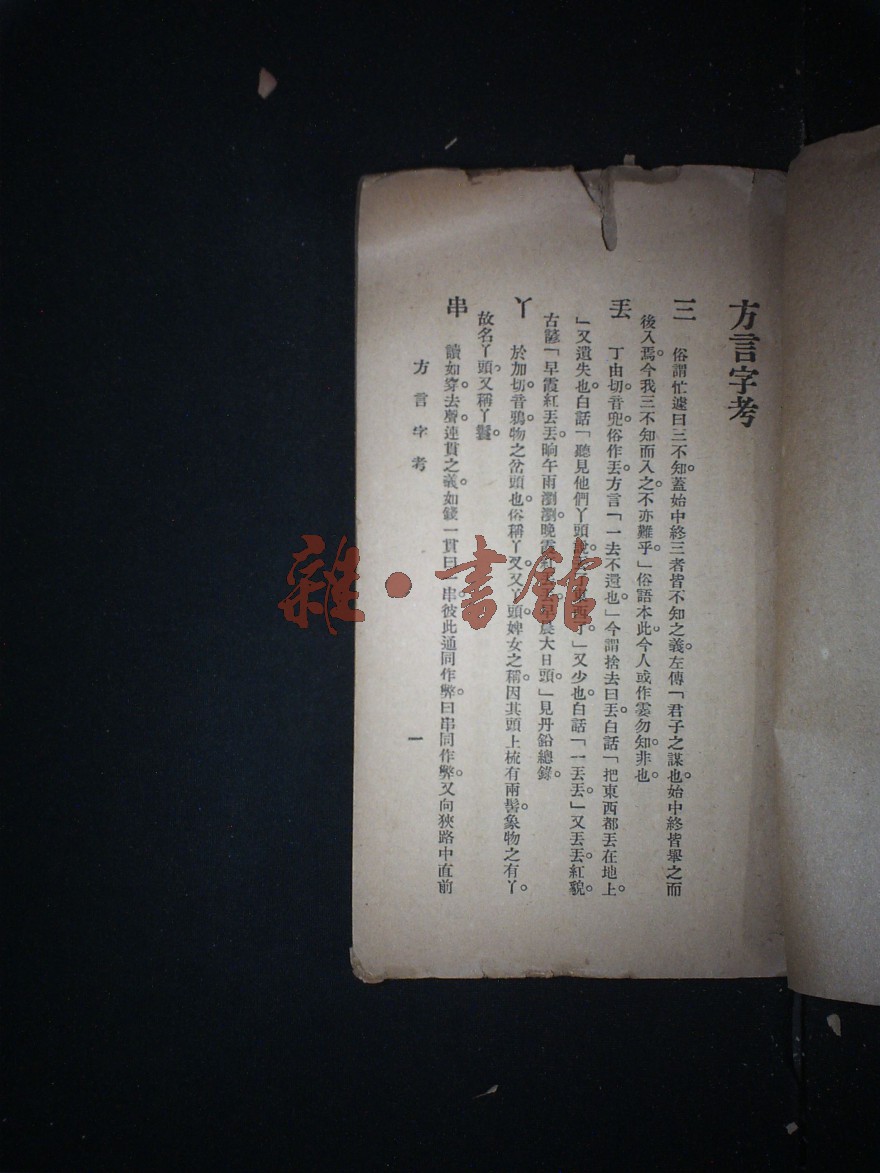 方言字考
三　俗謂忙遽曰三不知。蓋始中終三者皆不知之義。左傳「君子之謀也。始中終皆舉之而
後入焉。今我三不知而入之。不亦難乎。」俗語本此。今人或作雲勿知。非也。
丟　丁由切。音兜。俗作丟。方言「一去不還也。」今謂捨去曰丟。白話「把東西都丟在地上。
」又遺失也。白話「聽見他們丫頭東西了」又少也。白話「一丟丟。」又丟丟。紅貌。
古諺「早霞紅丟丟。晌午雨瀏瀏。晚霞紅丟丟。早晨大日頭。」見丹鉛總錄。
丫　於加切。音鴉。物之岔頭也。俗稱丫叉。又丫頭。婢女之稱。因其頭上梳有兩髻。象物之有丫。
故名丫頭。又稱丫鬟。
串　讀如穿去聲。連貫之義。如錢一貫曰一串。彼此通同作弊。曰串同作弊。又向狹路中直前
方言字考
一
雜・書館